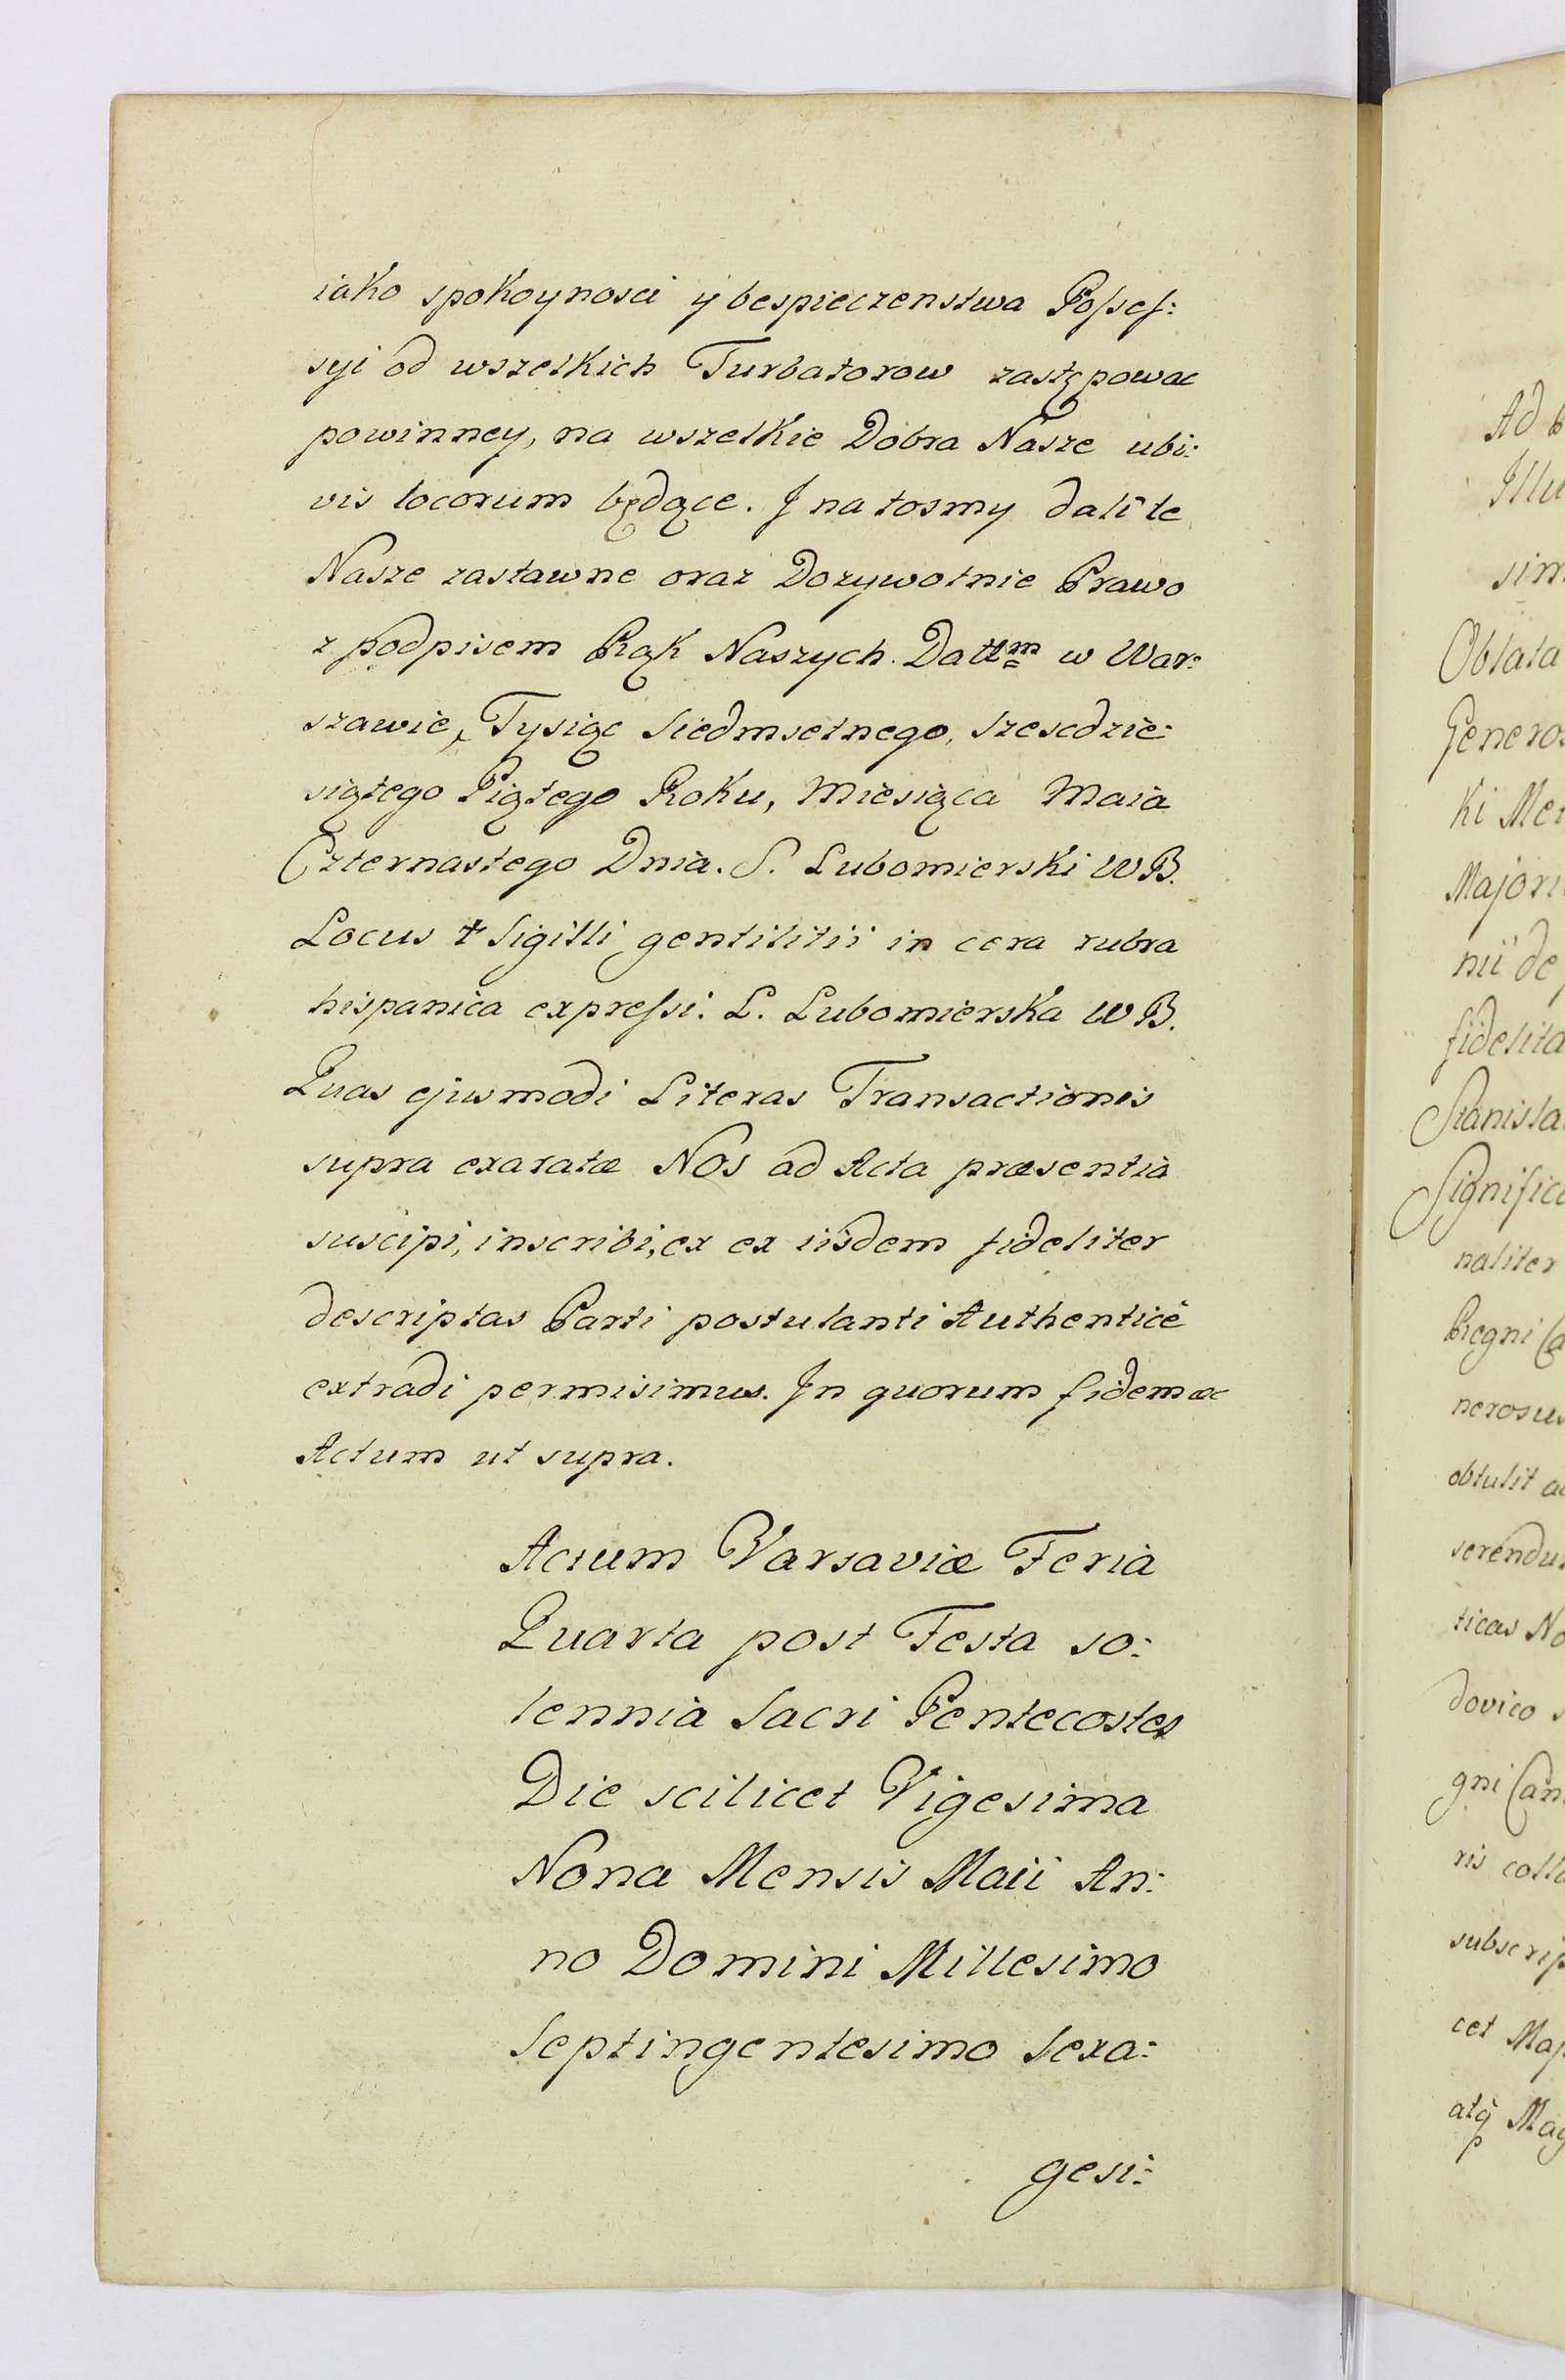 iako spokoynosci y bespieczenstwa Possef:
syi od wszelkich Turbatorow zastępowac
powinney, na wszelkie Dobra Nasze ubi:
vis locorum będące. J na tosmy dali te
Nasze zastawne oraz Dozywotnie Prawo
z podpisem Rąk Naszych. Dattm w War:
szawie, Tysiąc Siedmsetnego, Szescdzie:
siątego Piątego Roku, Miesiąca Maia
Czternastego Dnia. S. Lubomierski WB.
Locus † Sigilli gentilitii in cera rubra
hispanica expressi. L. Lubomierska WB.
Quas ejusmodi Literas Transactionis
supra exaratæ Nos ad Acta præsentia
suscipi, inscribi, ex ex iisdem fideliter
descriptas Parti postulanti Authenticè
extradi permisimus. Jn quorum fidem ac
Actum ut supra.
Actum Varsaviæ Feria
Quarta post Festa so:
lennia Sacri Pentecostes
Die scilicet Vigesima
Nona Mensis Maii An:
no Domini Millesimo
Septingentesimo Sexa:
gesi:
Ad
sim
Oblata
Generos
ki
Majori
nii de
fidelita
Stanisla
Significa
naliter
Regni Ca
nerosus
obtulit a
serendu
ticas No
dovico s
gni Can
ris colla
subscrip
cet Maj
atq Mag